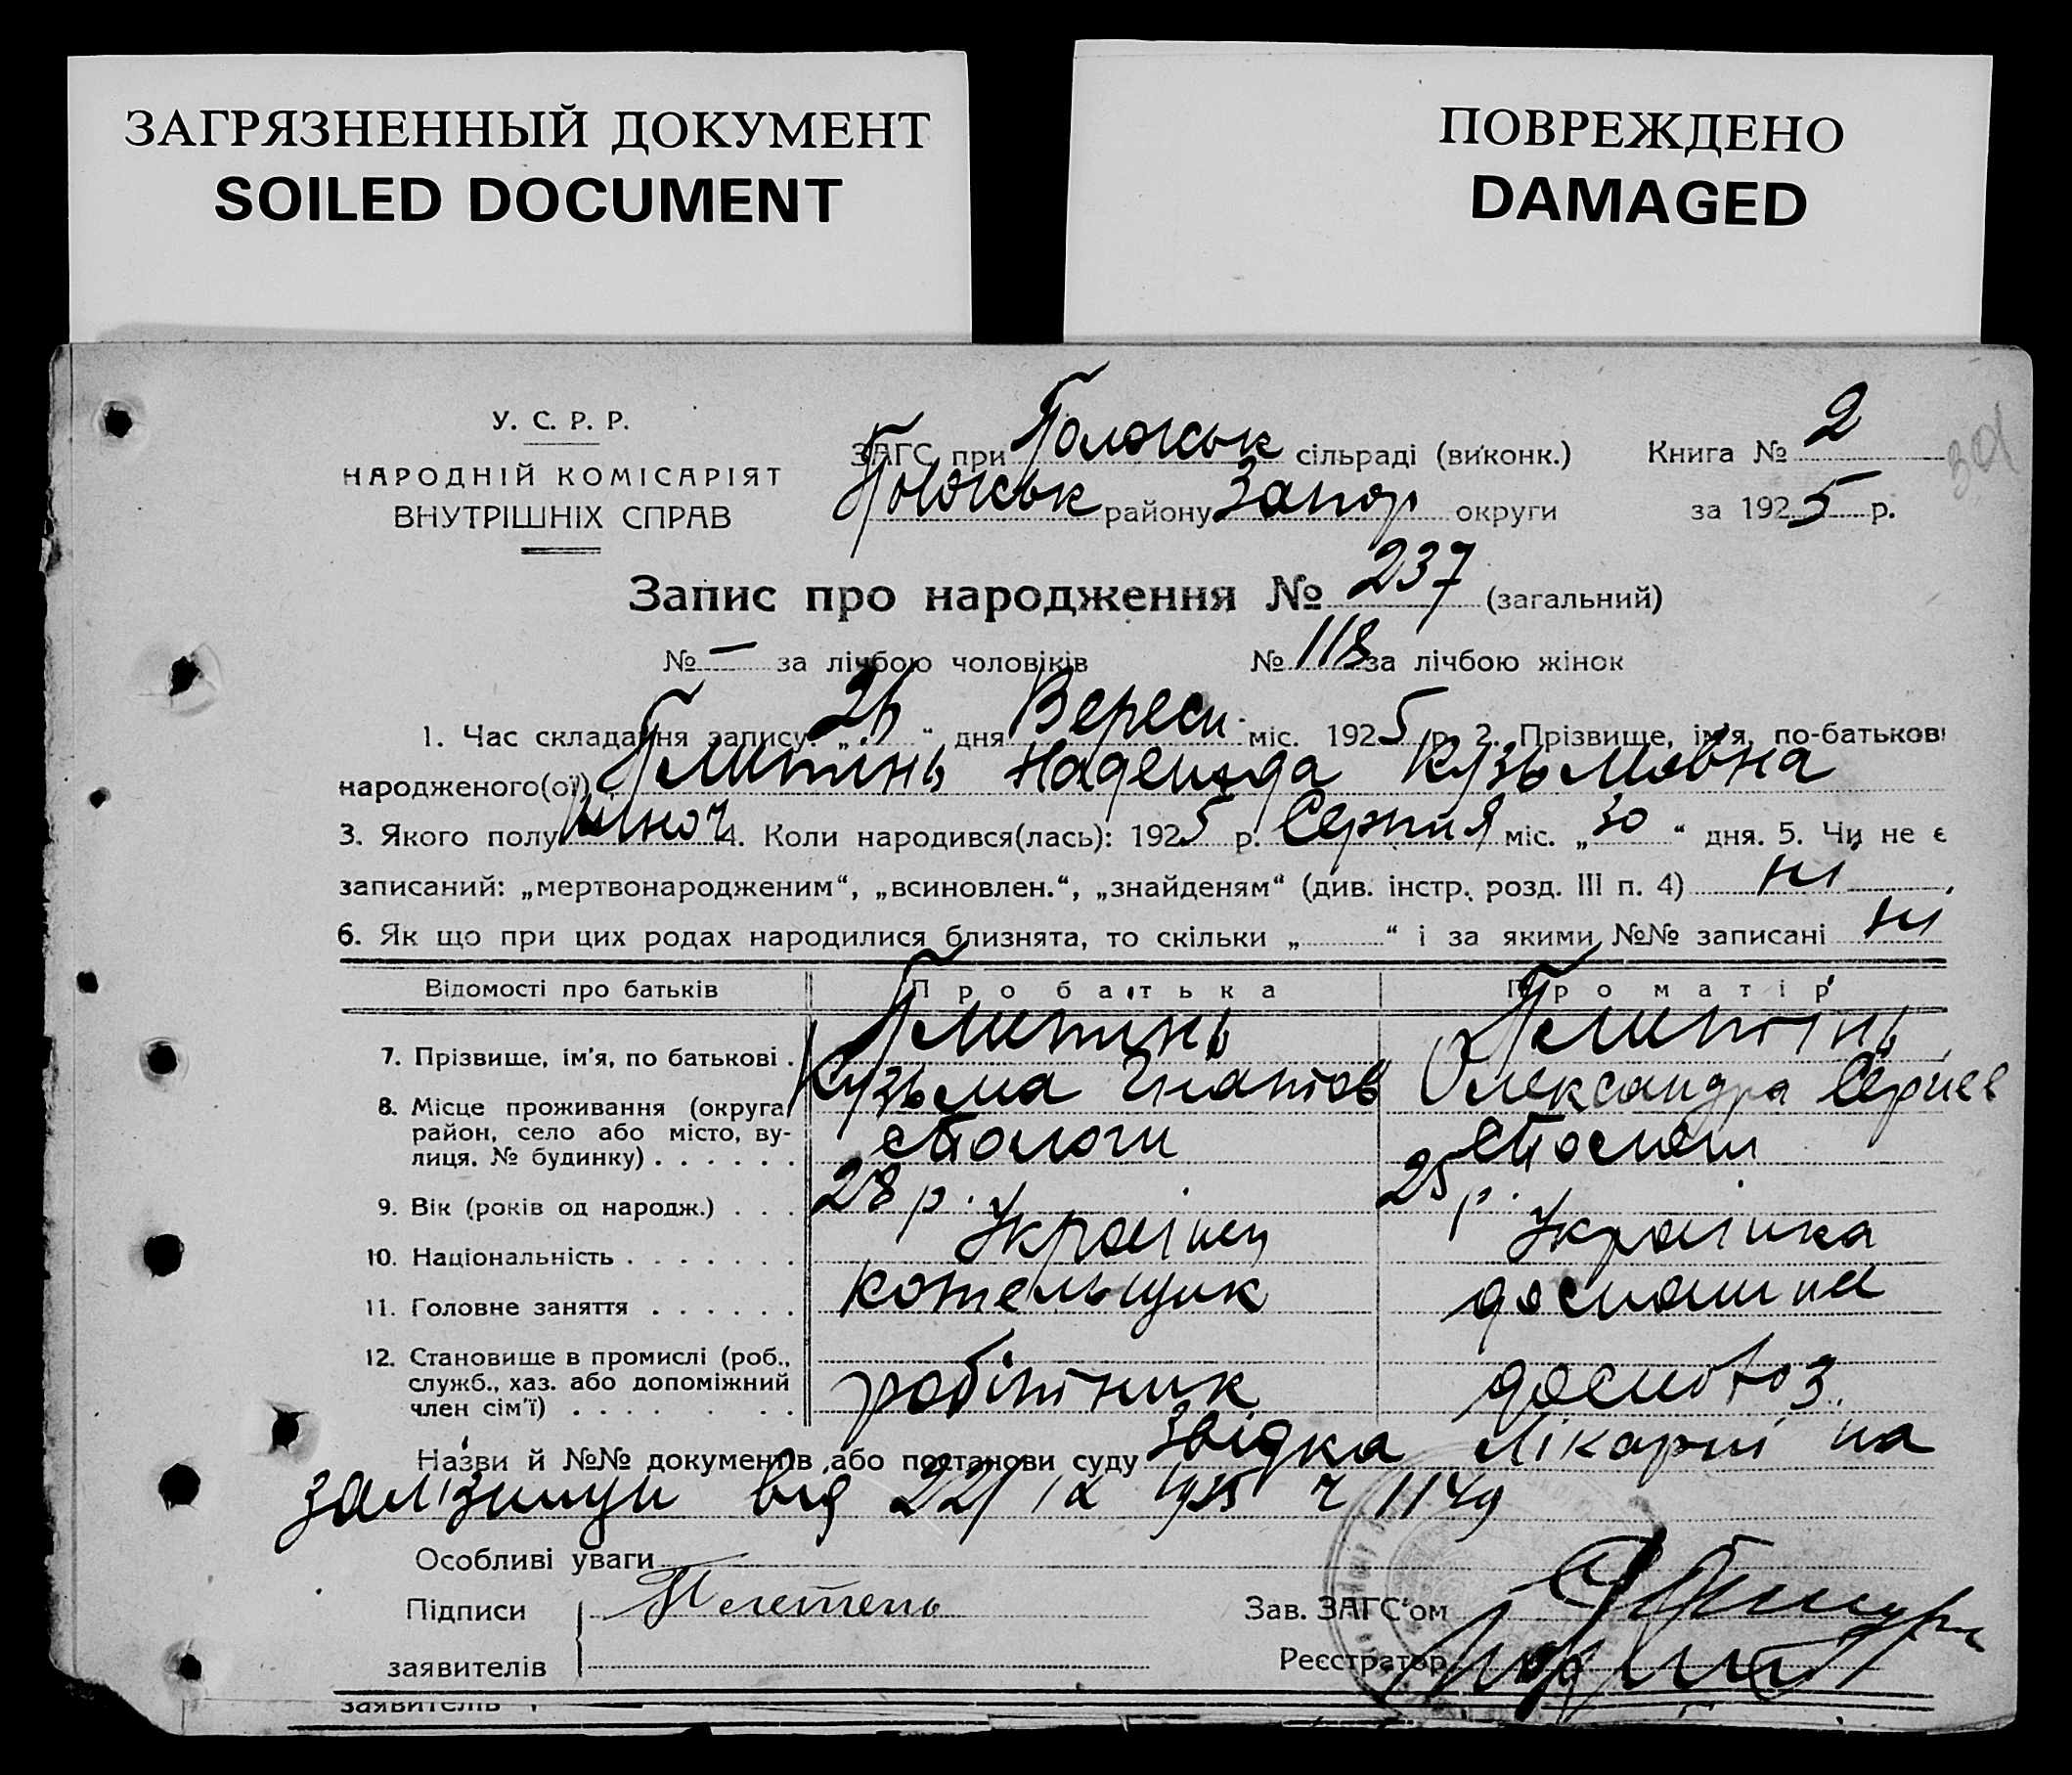 ЗАГРЯЗНЕННЫЙ ДОКУМЕНТ
SOILED DOCUMENT
ПОВРЕЖДЕНО
DAMAGED
У. С. Р. Р.
НАРОДНІЙ КОМІСАРІЯТ
ВНУТРІШНІХ СПРАВ
ЗАГС при Положськ сільраді (виконк.)
Положськ району Запор округи
Книга № 2
за 1925 р.
Запис про народження № 237 (загальний)
№ — за лічбою чоловіків № 118 за лічбою жінок
1. Час складання запису: „26“ дня Вересн. міс. 1925 р. 2. Прізвище, ім'я, по-батькові
народженого(ої) Плитінь Надежда Кузьмовна
3. Якого полу жіноч 4. Коли народився(лась): 1925 р. Серпня міс. „30“ дня. 5. Чи не є
записаний: „мертвонародженим“, „всиновлен.“, „знайденям“ (див. інстр. розд. III п. 4) ні
6. Як що при цих родах народилися близнята, то скільки „ “ і за якими №№ записані ні
Відомості про батьків Про батька Про матір
7. Прізвище, ім'я, по батькові . Плитінь Кузьма Гнатов Плитінь Олександра Сергиев
8. Місце проживання (округа,
район, село або місто, ву-
лиця. № будинку) . . . . . .
9. Вік (років од народж.) . . . 28 р. 25 р.
10. Національність . . . . . . . Українец Українка
11. Головне заняття . . . . . . котельщик
12. Становище в промислі (роб.,
служб., хаз. або допоміжний
член сім'ї) . . . . . . . робітник
Назви й №№ документів або постанови суду Звідка лікарні на
залізници від 22/IX 1925 ч 1149
Особливі уваги
Підписи Плетень
заявителів
Зав. ЗАГС'ом
Реєстратор
заявителів